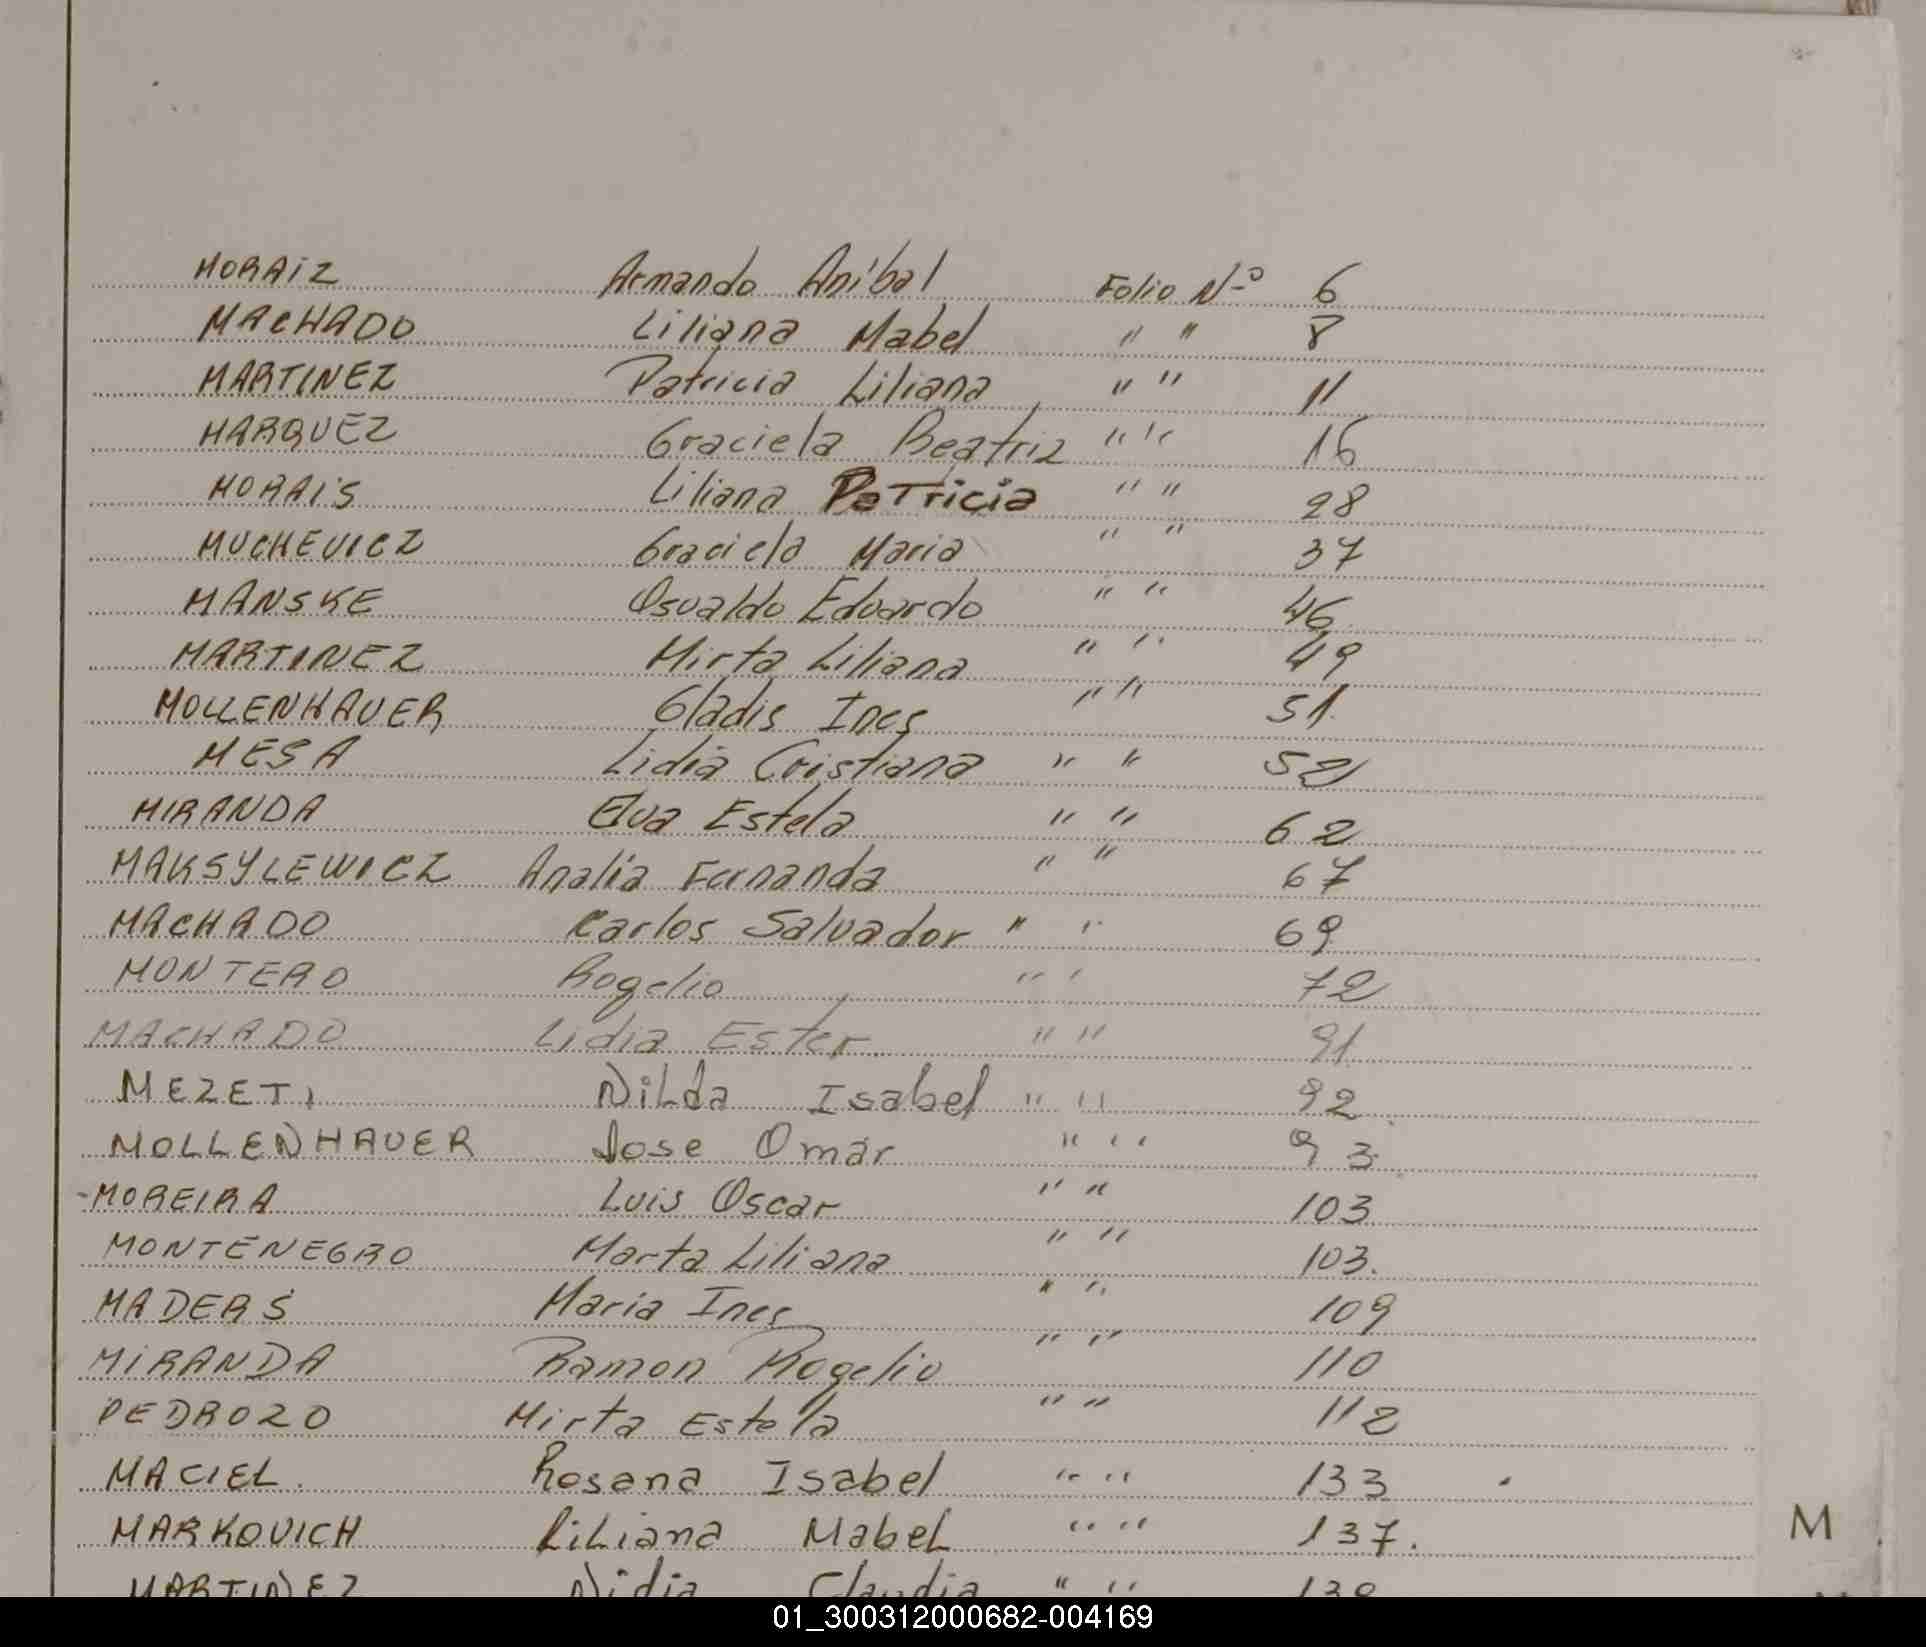 MORAIZ Armando Anibal Folio Nº 6
MACHADO Liliana Mabel " " 8
MARTINEZ Patricia Liliana " " 11
MARQUEZ Graciela Beatriz " " 16
MORAIS Liliana Patricia " " 28
MUCHEVICZ Graciela Maria " " 37
MANSKE Osvaldo Eduardo " " 46
MARTINEZ Mirta Liliana " " 49
MOLLENHAUER Gladis Ines " " 51
MESA Lidia Cristiana " " 52
MIRANDA Elva Estela " " 62
MAKSYLEWICZ Analia Fernanda " " 67
MACHADO Carlos Salvador " " 69
MONTERO Rogelio " " 72
MACHADO Lidia Ester " " 91
MEZETI Nilda Isabel " " 92
MOLLENHAUER Jose Omar " " 93
MOREIRA Luis Oscar " " 103
MONTENEGRO Marta Liliana " " 103.
MADERS Maria Ines " " 109
MIRANDA Ramon Rogelio " " 110
PEDROZO Mirta Estela " " 112
MACIEL Rosana Isabel " " 133
MARKOVICH LiLiana MabeL " " 137.
M
MARTINEZ Nidia Claudia " "
01_300312000682-004169